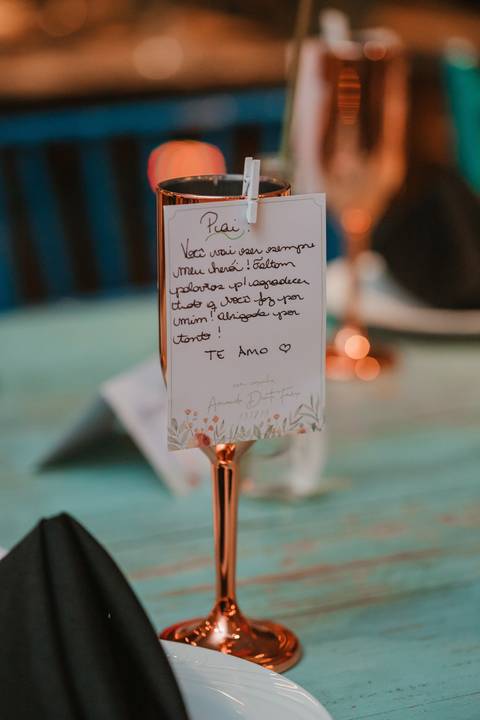 Pai!
Você vai ser sempre
meu herói! Faltam
palavras p/ agradecer
tudo q você fez por
mim! Obrigada por
tanto!
TE AMO ♡
com carinho
Amanda